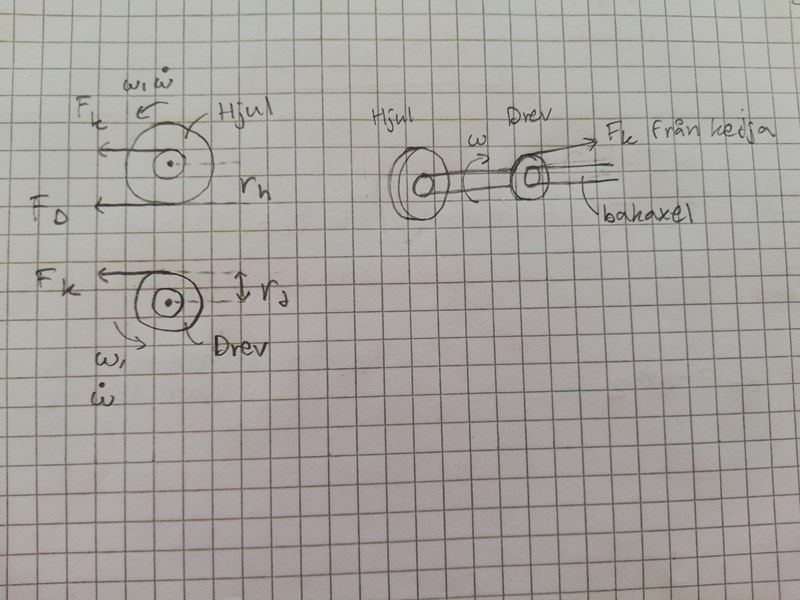 ω, ω̇
F_k
Hjul
r_h
F_D
F_k
r_d
Drev
ω,
ω̇
Hjul
Drev
ω
F_k från kedja
bakaxel